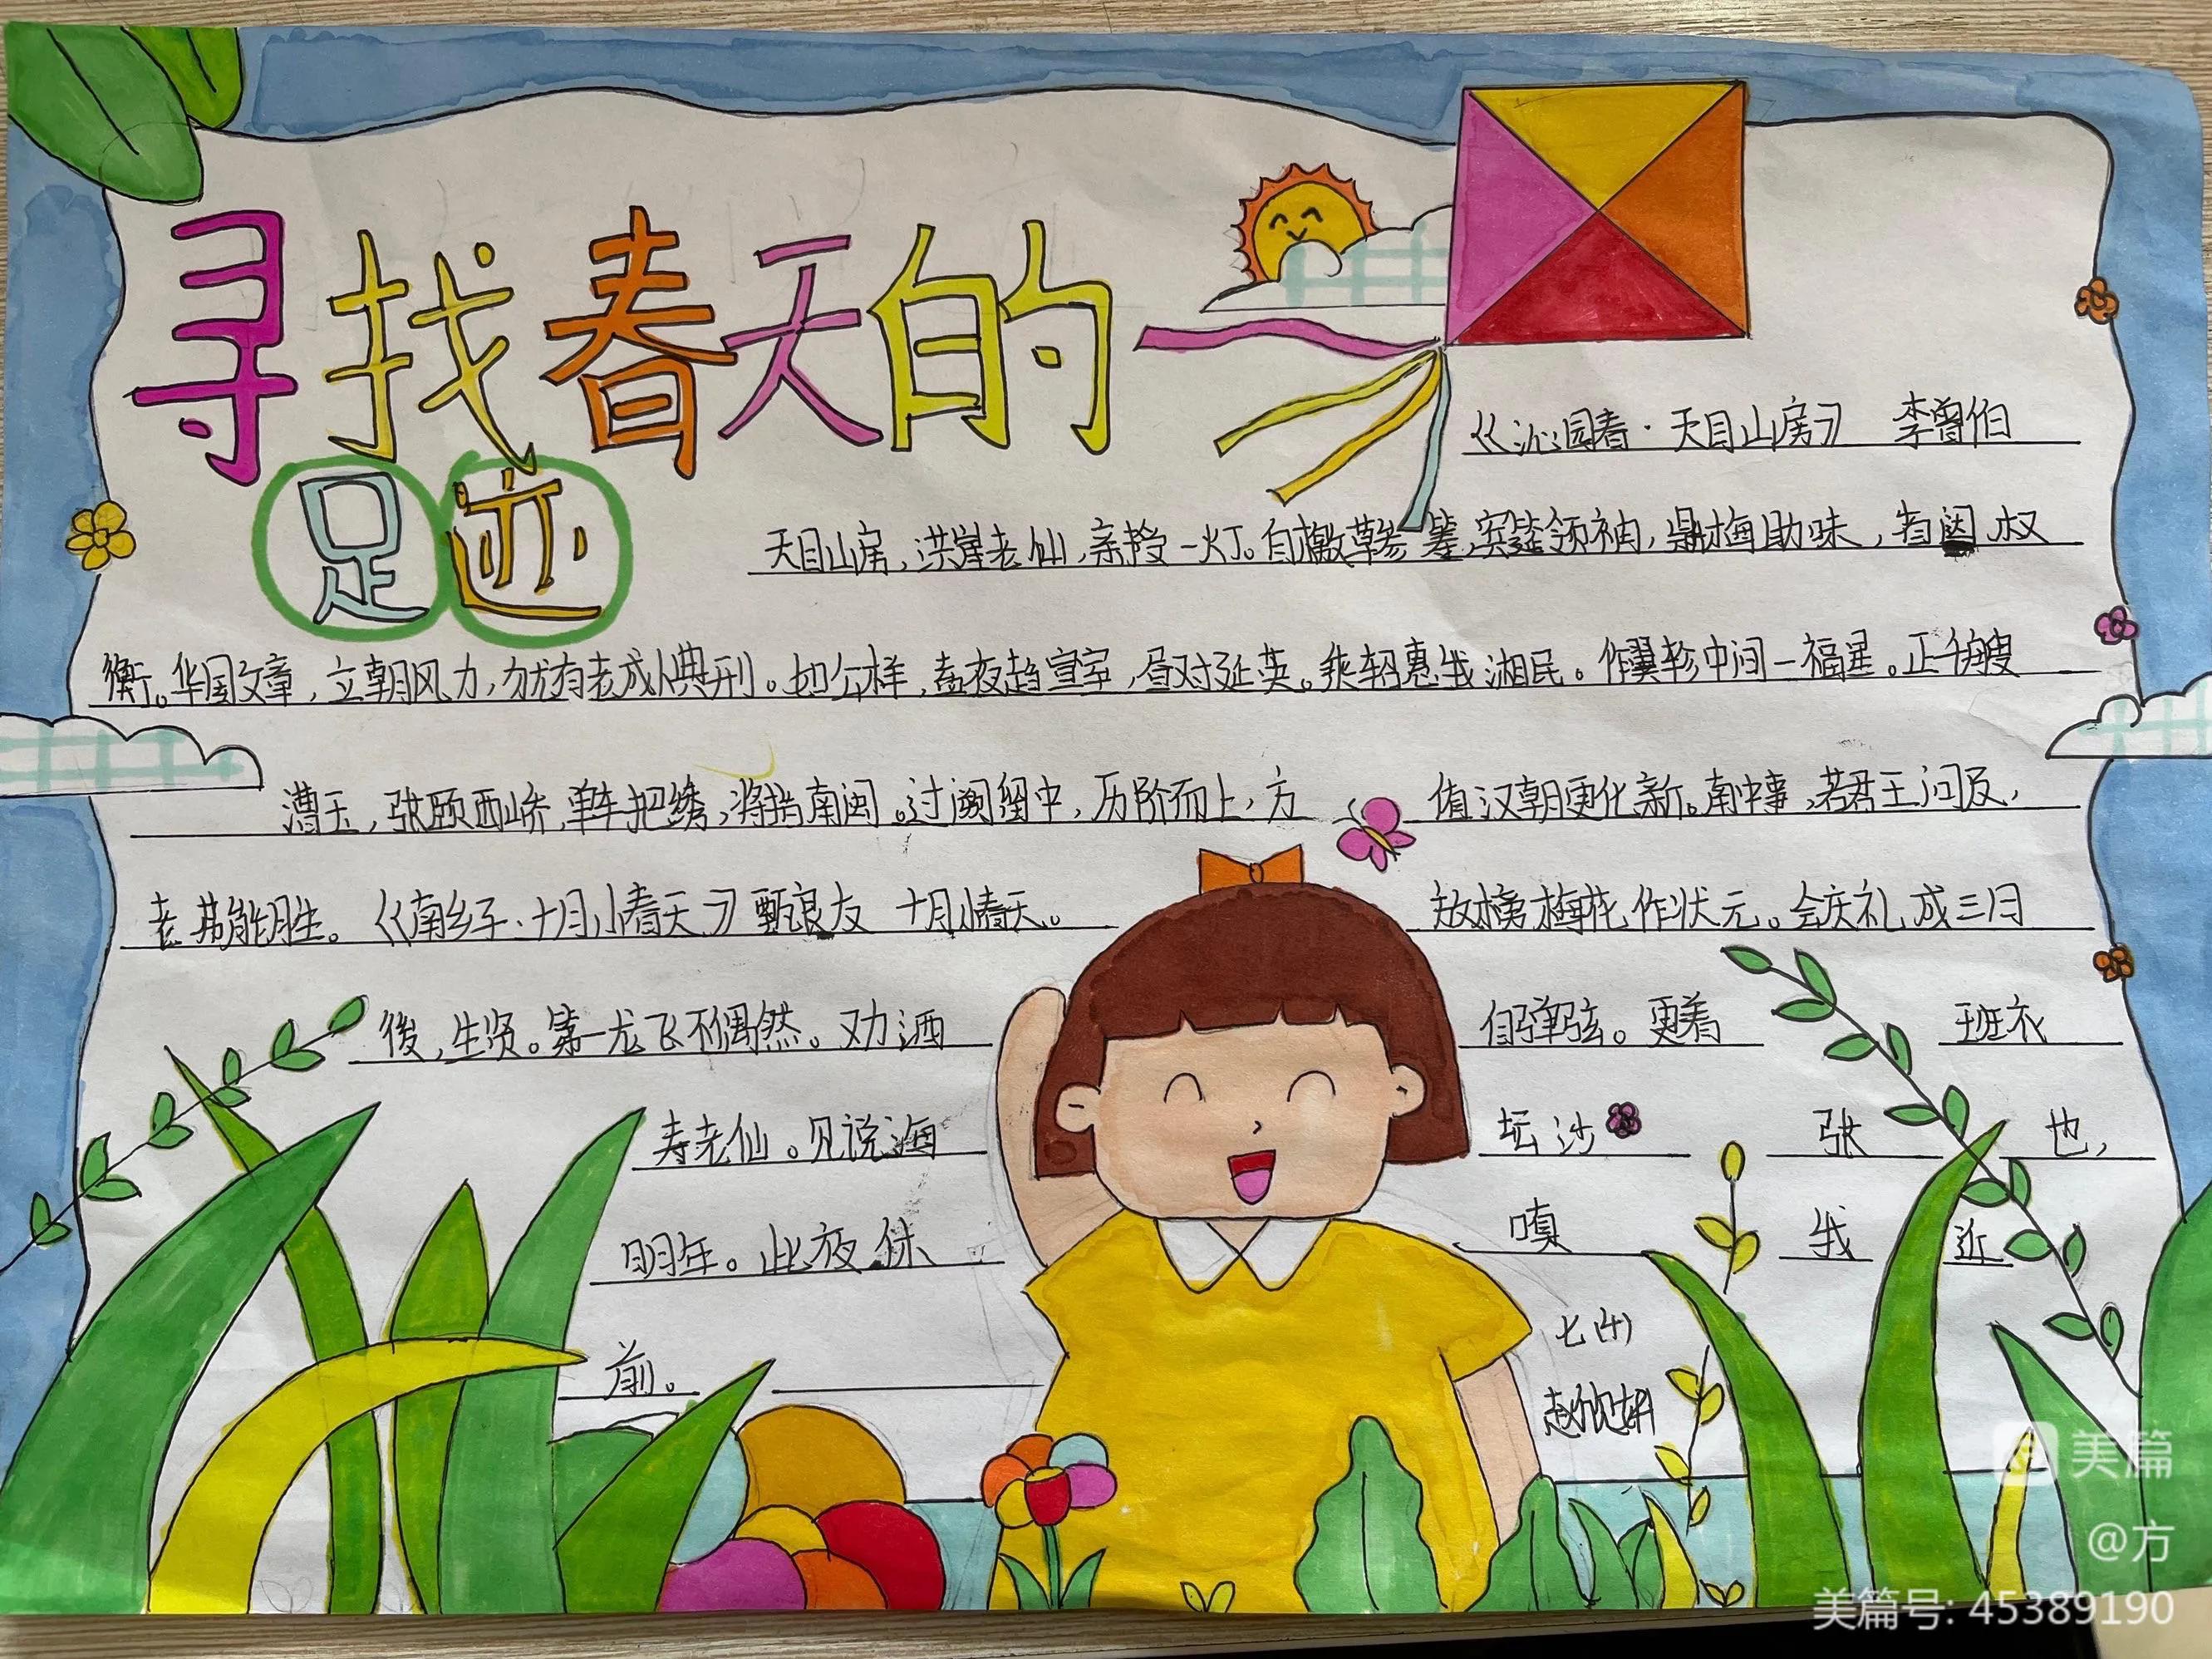 寻找春天的
足迹
《沁园春·天目山房》 李曾伯
天目山房，洪崖老仙，亲授一灯。自檄草参筹，寀筵领袖，鼎梅助味，省闼 权
衡。华国文章，立朝风力，犹有老成人典刑。如公样，盍夜趋宣室，昼对延英。乘轺惠我湘民。作翼轸中间一福星。正
漕玉，张颐西峤，单车把绣，将指南闽。过阙留中，历阶而上，方 值汉朝更化新。南中事，若君王问及，
老弗能胜。《南乡子·十月小春天》甄良友 十月小春天。 放榜梅花作状元。会庆礼成三日
後，生贤。第一龙飞不偶然。劝酒 自弹弦。更着 班衣
寿老仙。见说海 坛沙 张 也，
明年。此夜休 嗔 我 近
前。
七(4)
赵欣妍
美篇
@方
美篇号: 45389190